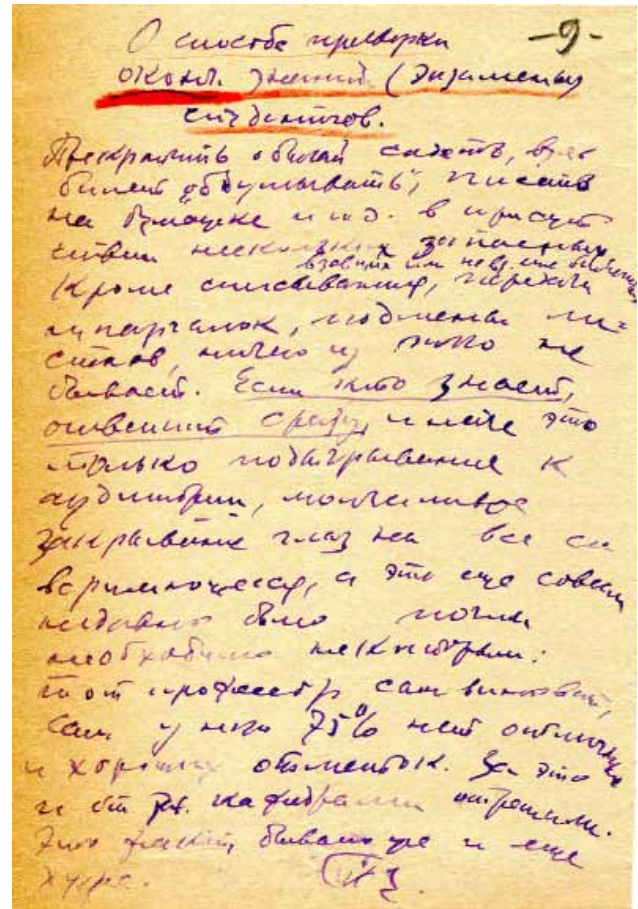 О способе проверки
-9-
оконч. знаний (экзамены)
студентов.
Прекратить обычай сидеть, взяв
билет „обдумывать", писать
на бумажке и т.д. в присут
ствии нескольких
взявших им невз. еще билеты
Кроме списывания, передачи
шпаргалок, подмены ли-
стков, ничего из этого не
бывает. Если кто знает,
ответит сразу, иначе это
только подыгрывание к
аудитории, молчаливое
закрывание глаз на все со
вершающееся, а это еще совсем
недавно было почти
необходимо некоторым:
тот профессор сам виноват,
если у него 75% нет отличных
и хороших отметок. За это
и от кафедрами отрешали.
Это факт, бывало уже и еще
хуже.